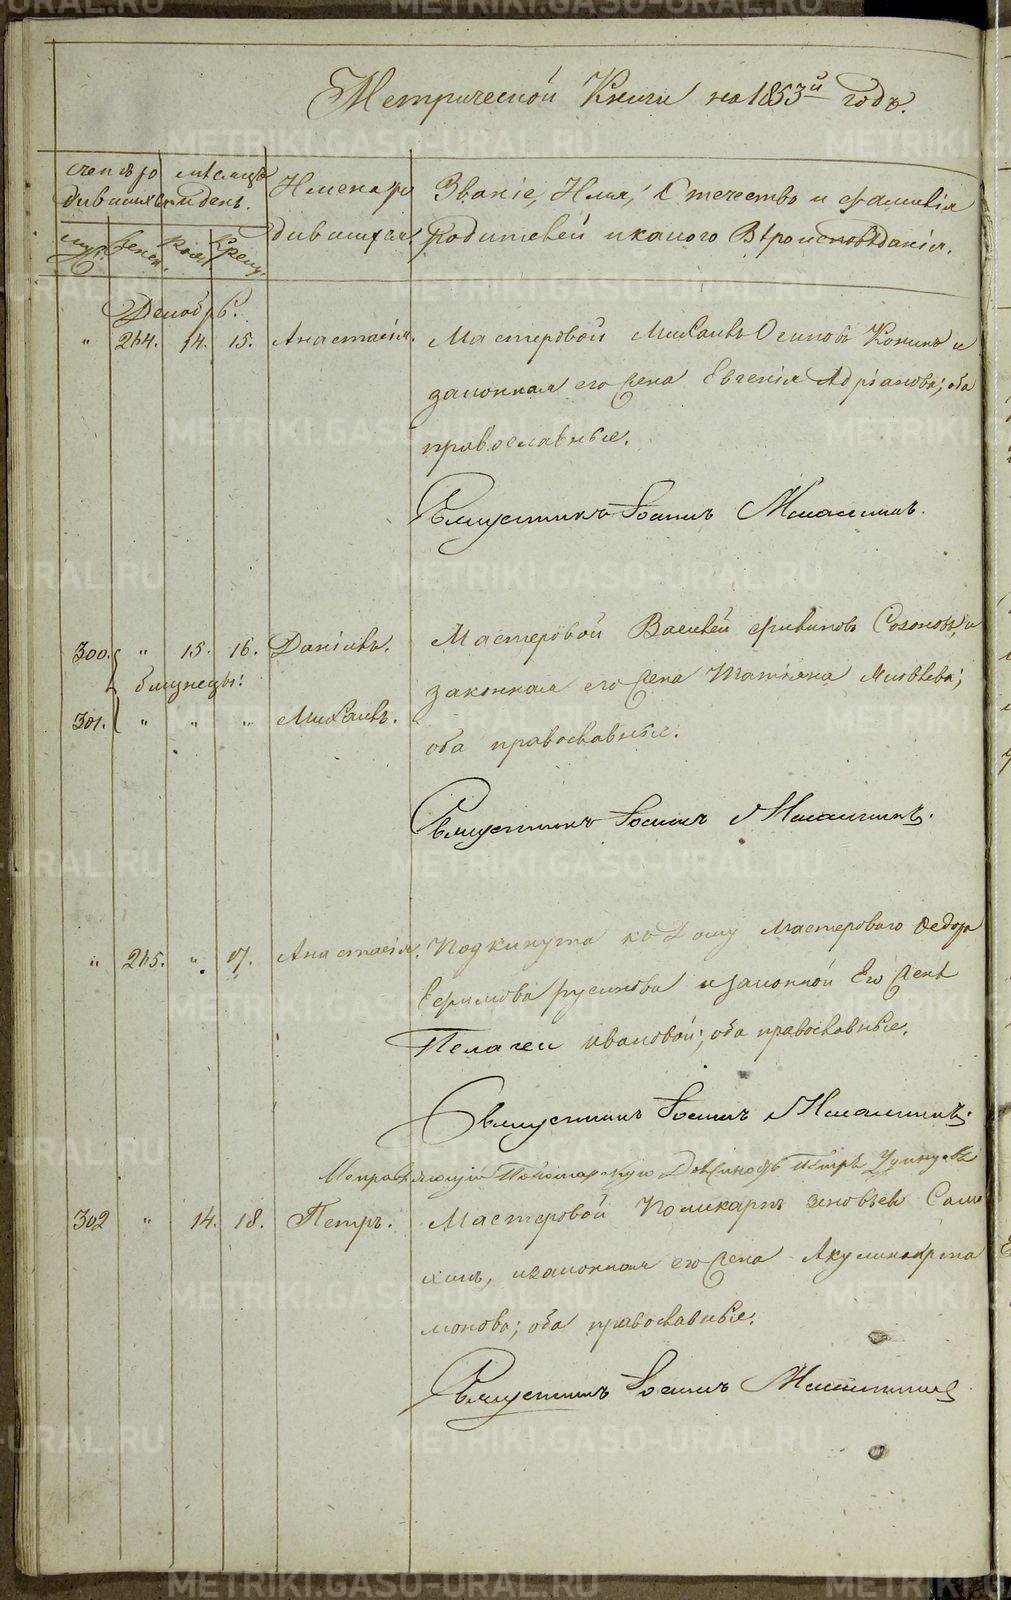 Метрической Книги на 1853й годъ.
счетъ ро дившихся
месяцъ и день.
Имена ро дившихся.
Званіе, Имя, Отечество и фамилія
родителей и какого Вѣроисповѣданія.
муж. женск. Рожд. Крещ.
Декабрь.
" 244. 14. 15. Анастасія. Мастеровой Михаилъ Осиповъ Конинъ и
законная его жена Евгенія Адріанова; оба
православные.
Священникъ Іоаннъ
300. " 15. 16. Даніилъ. Мастеровой Василей Филиповъ Созоновъ, и
близнецы:
законная его жена Татіяна Яковлева;
301. " " " Михаилъ.
оба православные.
Священникъ Іоаннъ
" 245. " 17. Анастасія. Подкинута къ Дому Мастероваго Федора
Ефимова Русинова и законной Его Женѣ
Пелагеи Ивановой; оба православные.
Священникъ Іоаннъ
Исправляющій Пономарскую Должность Петръ
302 " 14. 18. Петръ. Мастеровой Поликарпъ Зиновьев
и законная его жена Акулина Арта
монова; оба православные.
Священникъ Іоаннъ
METRIKI.GASO-URAL.RU